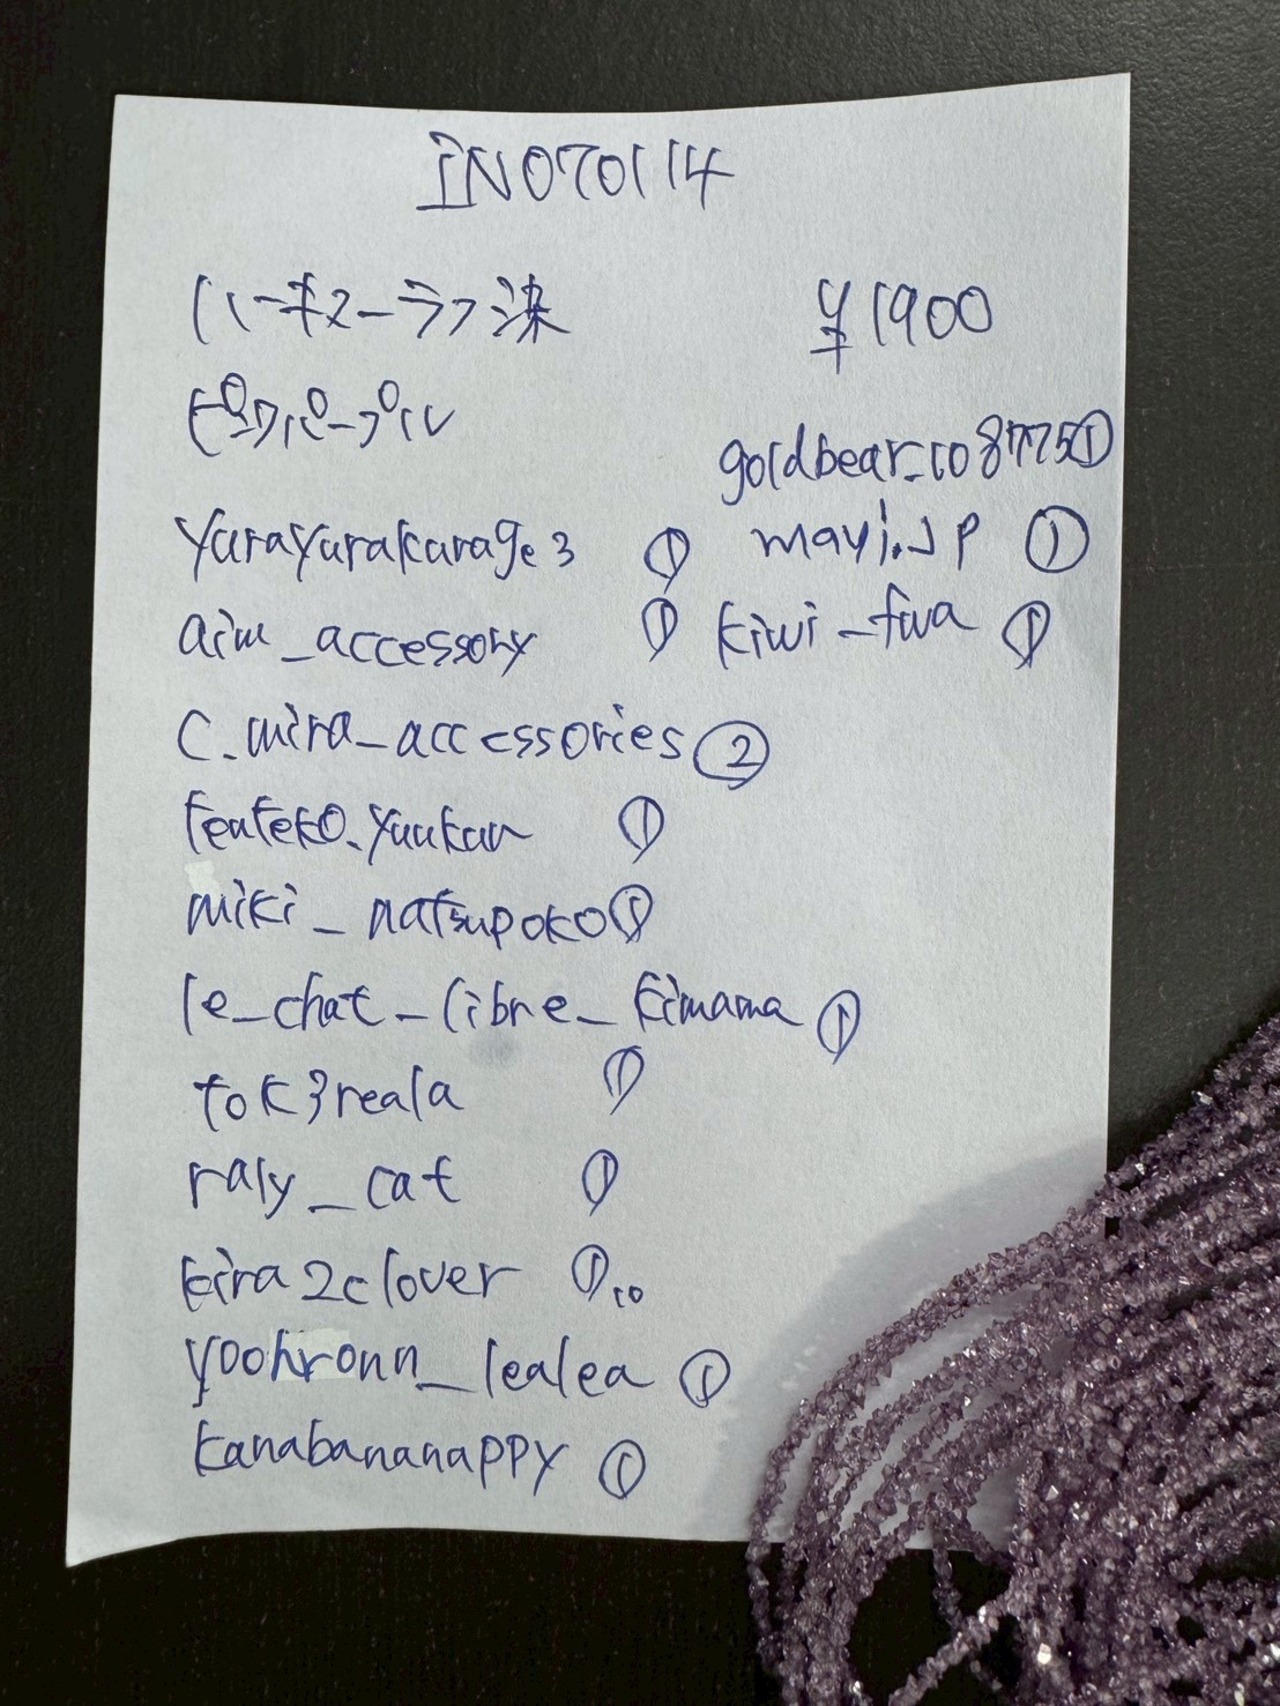 INO70114
ハーキマーラフ染 ¥1900
ピンクパープル
goldbear_108775①
yurayurakarage3 ①
mayi.JP ①
aim_accessory ①
kiwi_fwa ①
c.mira_accessories②
teuteko.yuukun ①
miki_natsupoko①
le_chat_libre_kimama ①
tok3reala ①
raly_cat ①
kira2clover ①10
yoohronn_lealea ①
kanabananappy ①